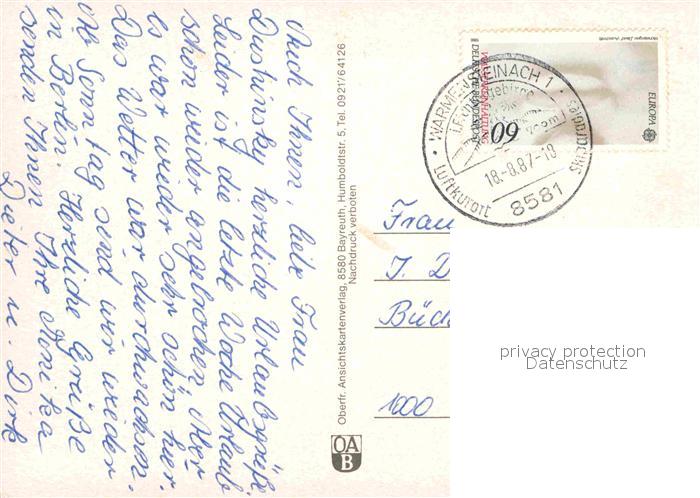 Auch Ihnen, liebe Frau
Dushinsky herzliche Urlaubsgrüße.
Leider ist die letzte Woche Urlaub
schon wieder angebrochen. Aber
es war wieder sehr schön hier.
Das Wetter war durchwachsen.
Ab Sonntag sind wir wieder
in Berlin. Herzliche Grüße
senden Ihnen Ihre Monika
Dieter u. Dirk
Oberfr. Ansichtskartenverlag, 8580 Bayreuth, Humboldtstr. 5, Tel. 0921/64126
Nachdruck verboten
OA
B
DEUTSCHE BUNDESPOST
60
EUROPA
WARMENSTEINACH 1
18.-8.87-18
Luftkurort
8581
Frau
J. D
Büc
1000
privacy protection
Datenschutz